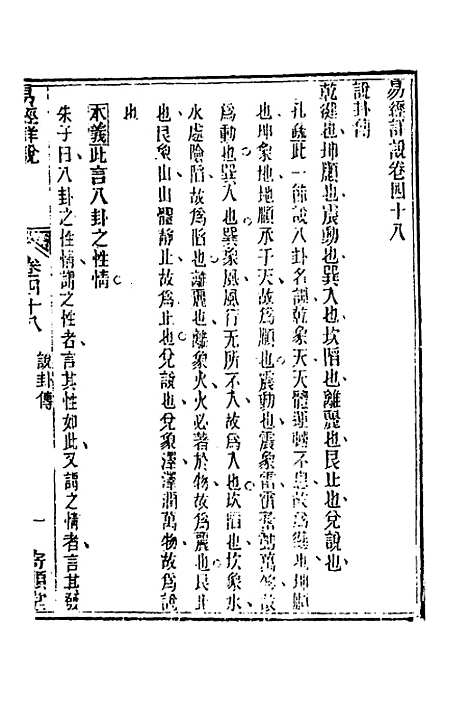 易經詳說卷四十八
說卦傳
乾健也坤順也震動也巽入也坎陷也離麗也艮止也兌說也
孔疏此一節說八卦名訓乾象天天體運轉不息故為健也坤順
也坤象地地順承于天故為順也震動也震象雷雷奮動萬物故
為動也巽入也巽象風風行无所不入故為入也坎陷也坎象水
水處險陷故為陷也離麗也離象火火必著於物故為麗也艮止
也艮象山山體靜止故為止也兌說也兌象澤澤潤萬物故為說
也
本義此言八卦之性情
朱子曰八卦之性情謂之性者言其性如此又謂之情者言其發
易經詳說
卷四十八
說卦傳
一
寄願堂